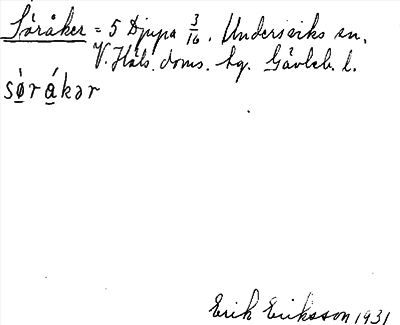 Söråker = 5 Djupa 3/16. Undersviks sn.
V. Häls. doms. hg. Gävleb. l.
sø̀rákər
Erik Eriksson 1931